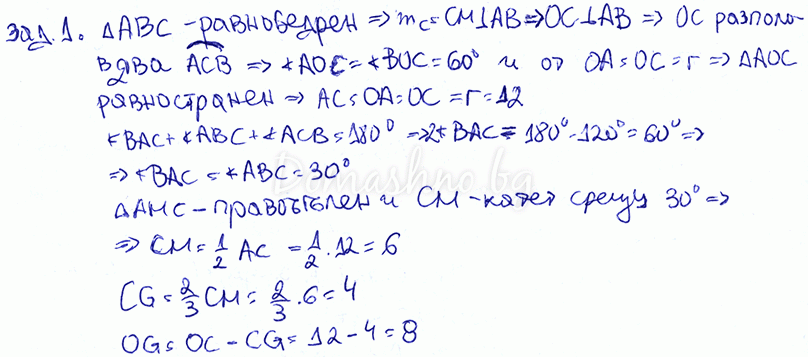 зад.1. ΔABC - равнобедрен ⇒ m_c = CM⊥AB ⇒ OC⊥AB ⇒ OC разполо-
вява ACB ⇒ ∢AOC = ∢BOC = 60° и от OA = OC = r ⇒ ΔAOC
равностранен ⇒ AC = OA = OC = r = 12
∢BAC + ∢ABC + ∢ACB = 180° ⇒ 2∢BAC = 180° - 120° = 60° ⇒
⇒ ∢BAC = ∢ABC = 30°
Domashno.bg
ΔAMC - правоъгълен и CM - катет срещу 30° ⇒
⇒ CM = 1/2 AC = 1/2 . 12 = 6
CG = 2/3 CM = 2/3 . 6 = 4
OG = OC - CG = 12 - 4 = 8